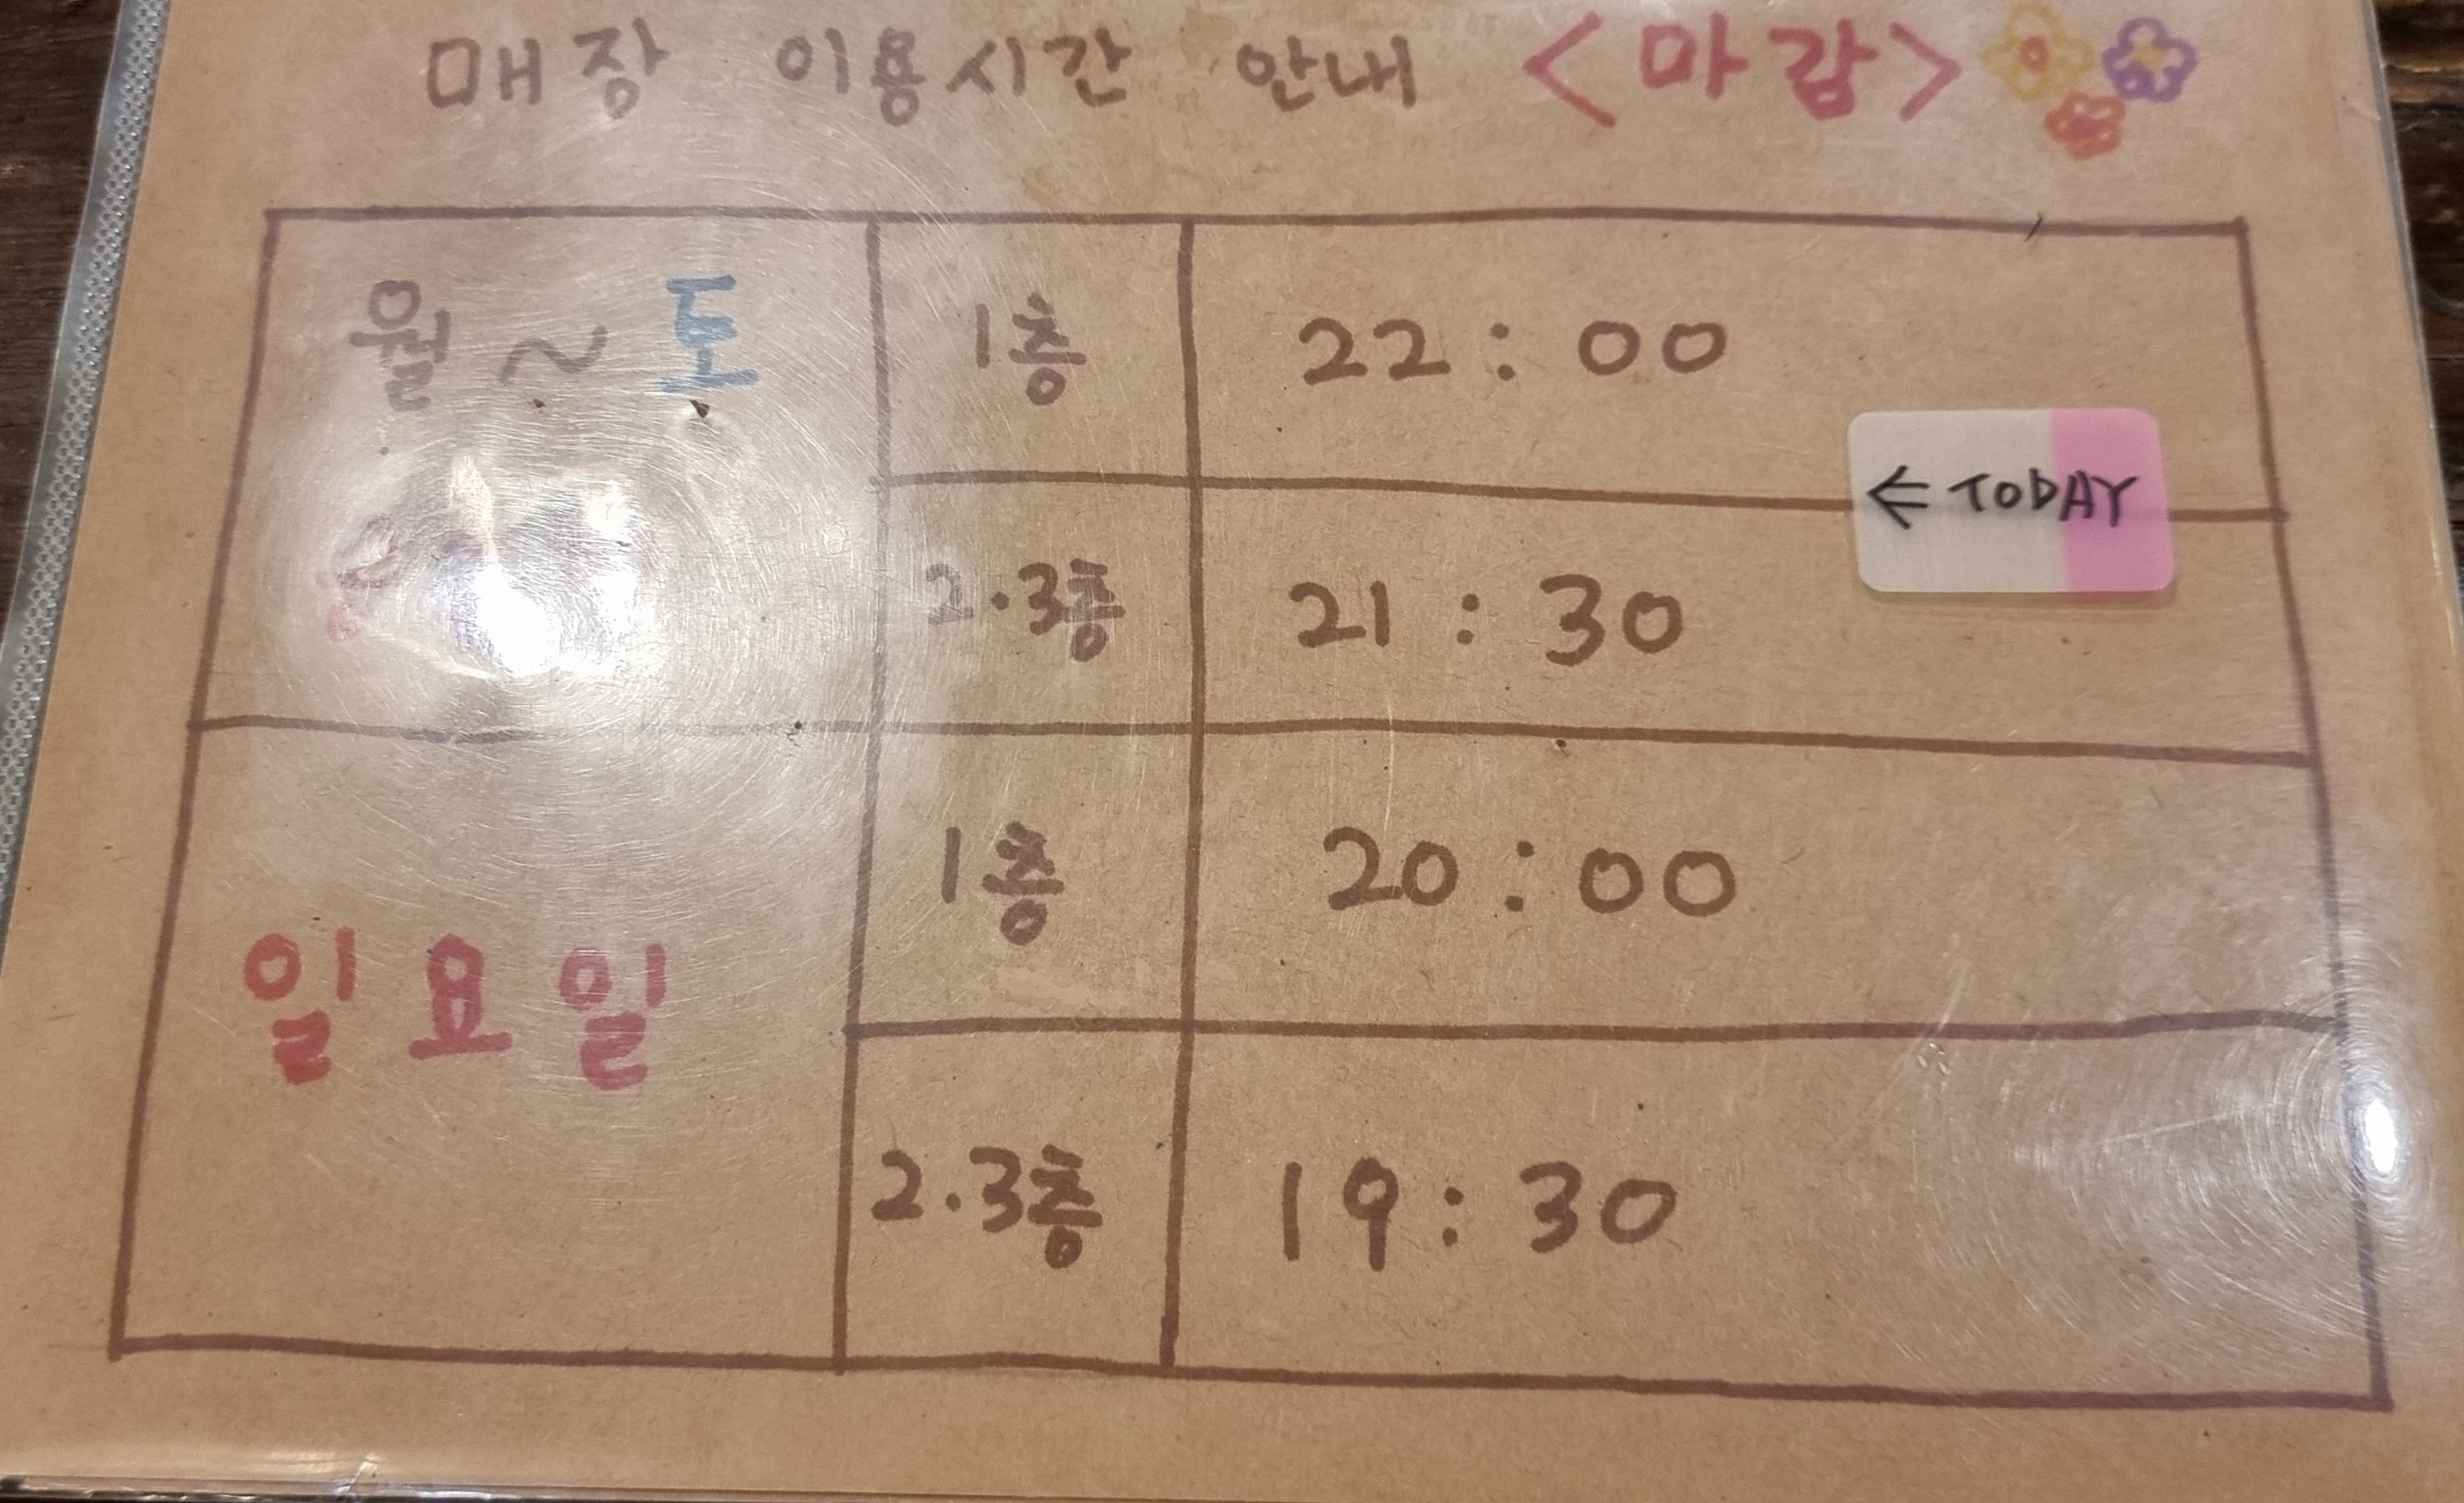 매장 이용시간 안내 <마감>
월 ~ 토
1층 22 : 00
← TODAY
2.3층 21 : 30
일요일
1층 20 : 00
2.3층 19 : 30